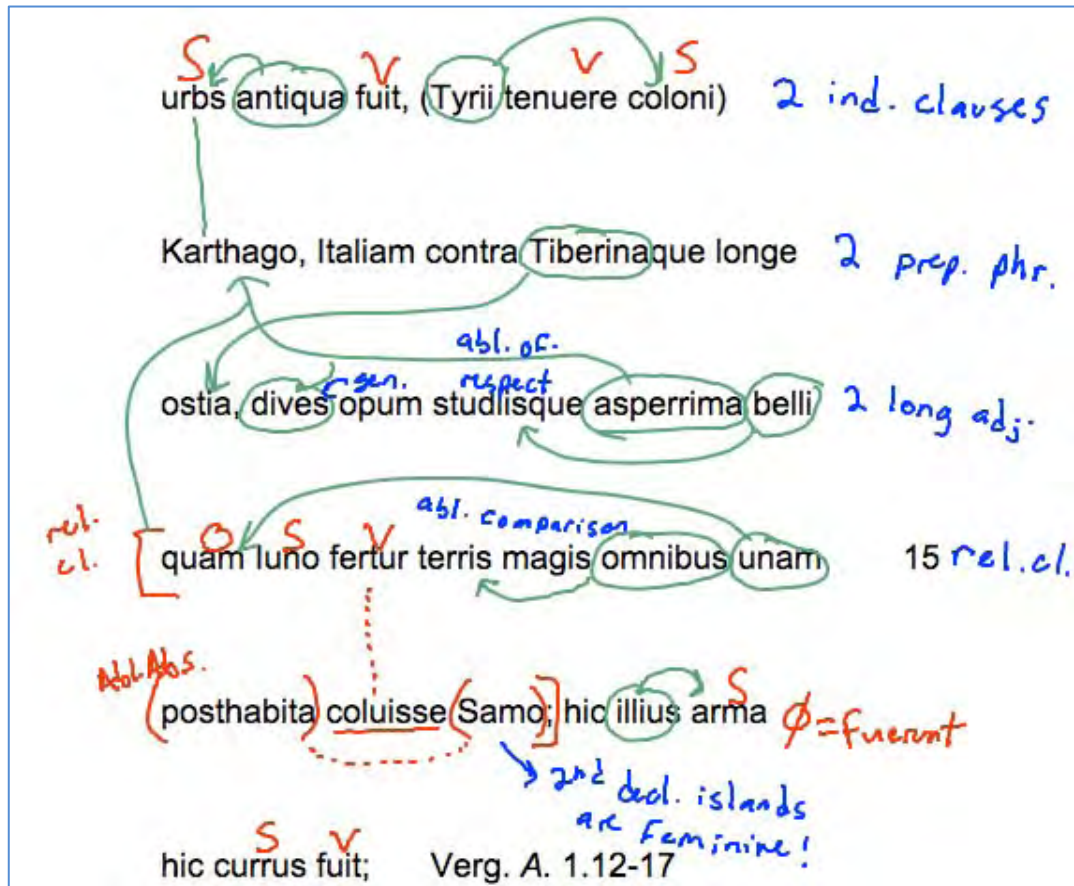 S V V S
urbs antiqua fuit, (Tyrii tenuere coloni) 2 ind. clauses
Karthago, Italiam contra Tiberinaque longe 2 prep. phr.
abl. of.
gen. respect
ostia, dives opum studiisque asperrima belli 2 long adj.
rel.
cl.
O S V abl. comparison
quam Iuno fertur terris magis omnibus unam 15 rel. cl.
Abl. Abs. S
(posthabita) coluisse (Samo;)] hic illius arma Ø=fuerunt
2nd decl. islands
are feminine!
S V
hic currus fuit; Verg. A. 1.12-17